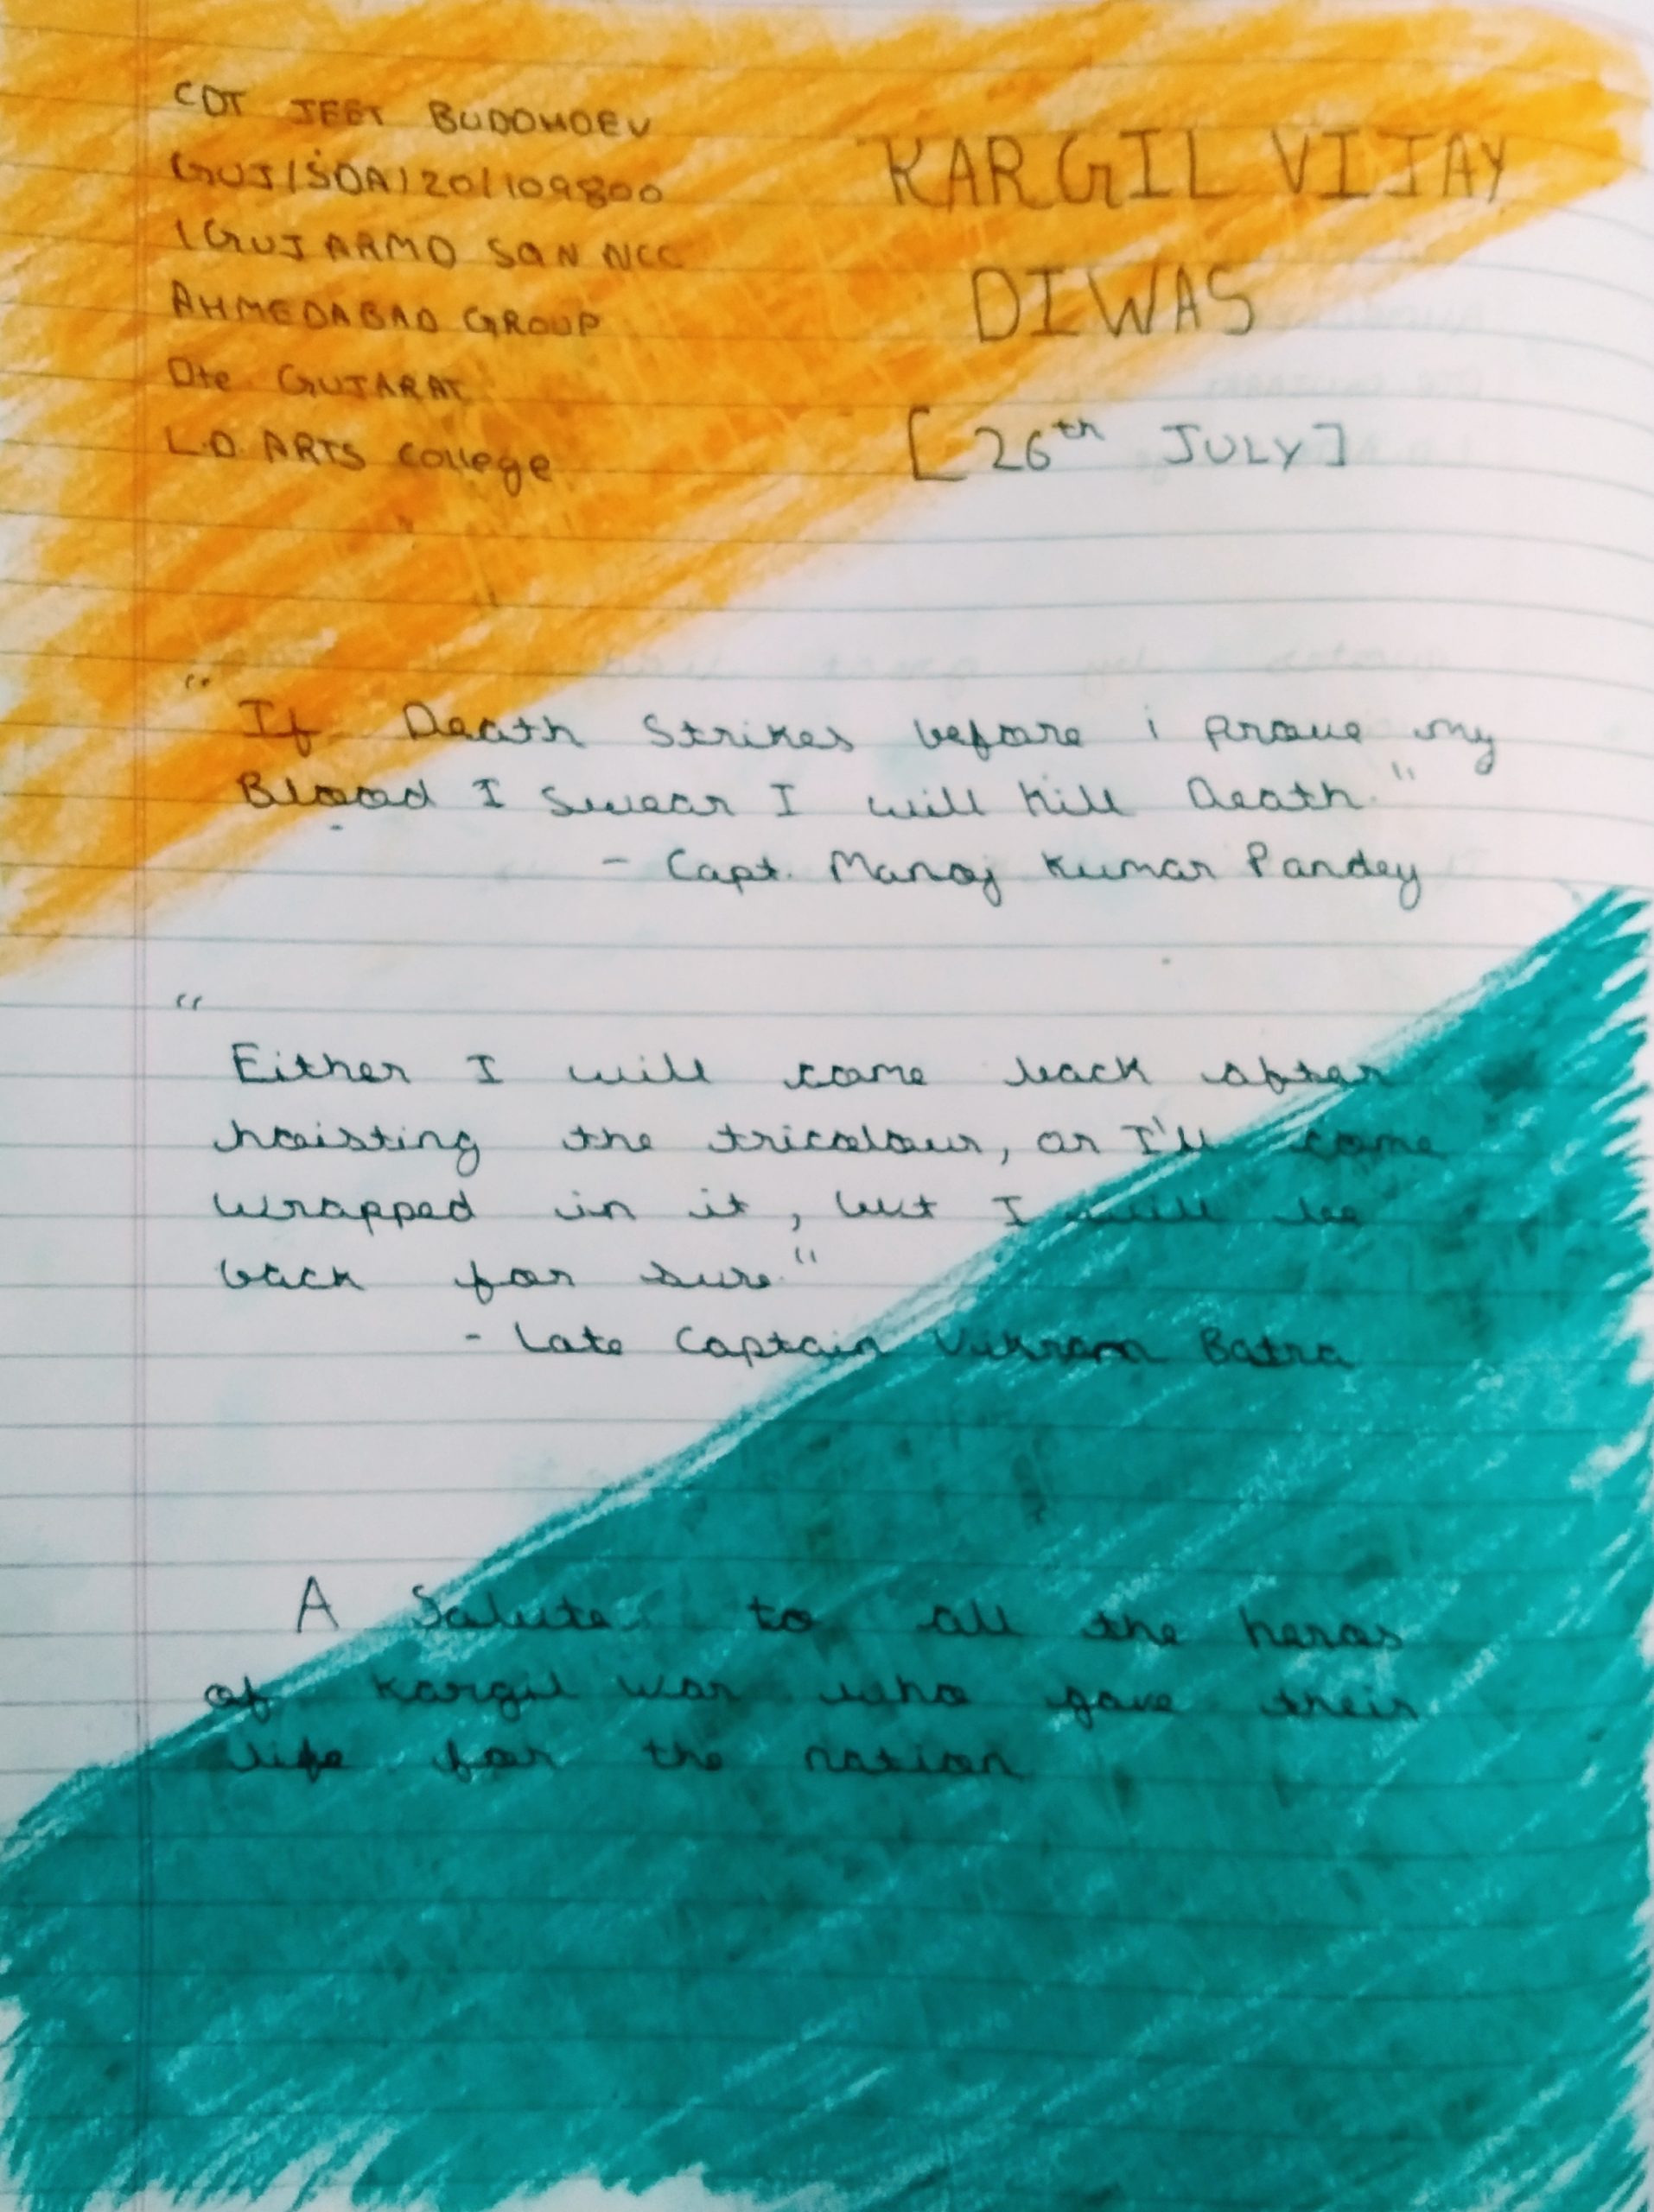 CDT JEET BUDDHDEV
GUJ/SDA/20/109800
1 GUJ ARMD SQN NCC
AHMEDABAD GROUP
Dte GUJARAT
L.D ARTS College
KARGIL VIJAY
DIWAS
[26th JULY]
"If Death Strikes before i prove my
Blood I swear I will kill Death."
- Capt. Manoj Kumar Pandey
"Either I will come back after
hoisting the tricolour, or I'll come
wrapped in it, but I will be
back for sure."
- Late Captain Vikram Batra
A Salute to all the heros
of Kargil war who gave their
life for the nation